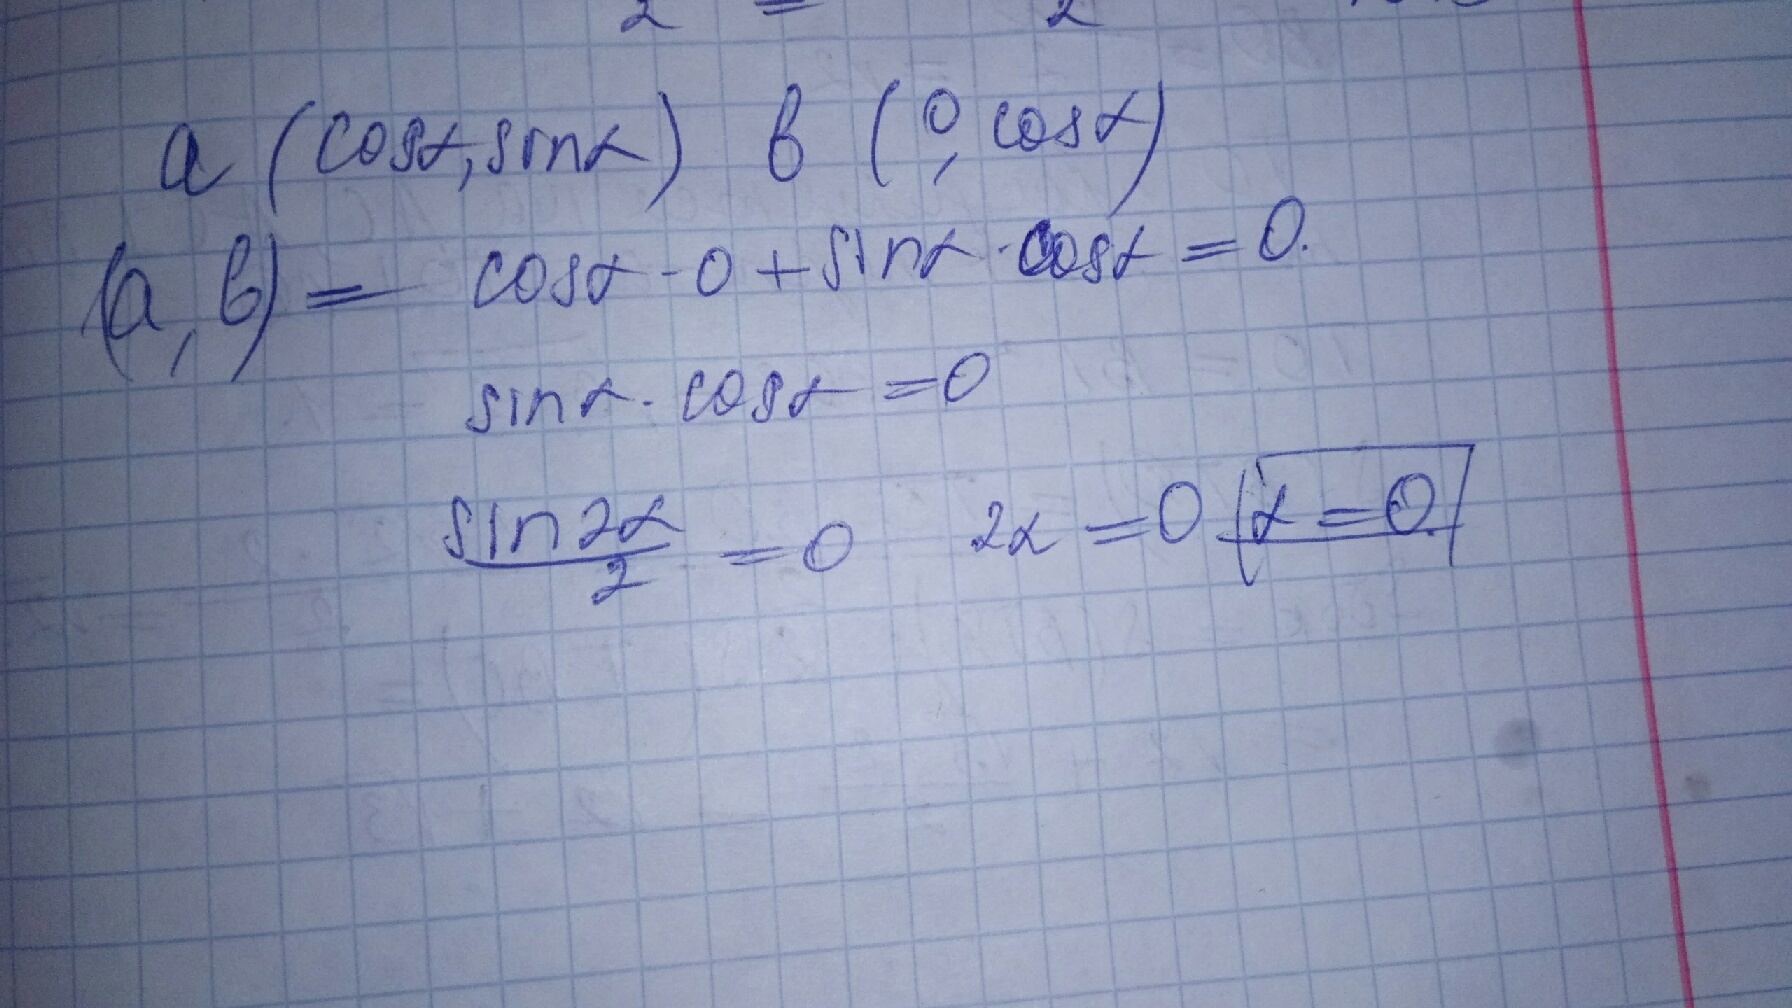 2 = 2
a (cosα, sinα) b (0, cosα)
(a, b) = cosα · 0 + sinα · cosα = 0.
sinα · cosα = 0
sin2α/2 = 0 2α = 0 α = 0